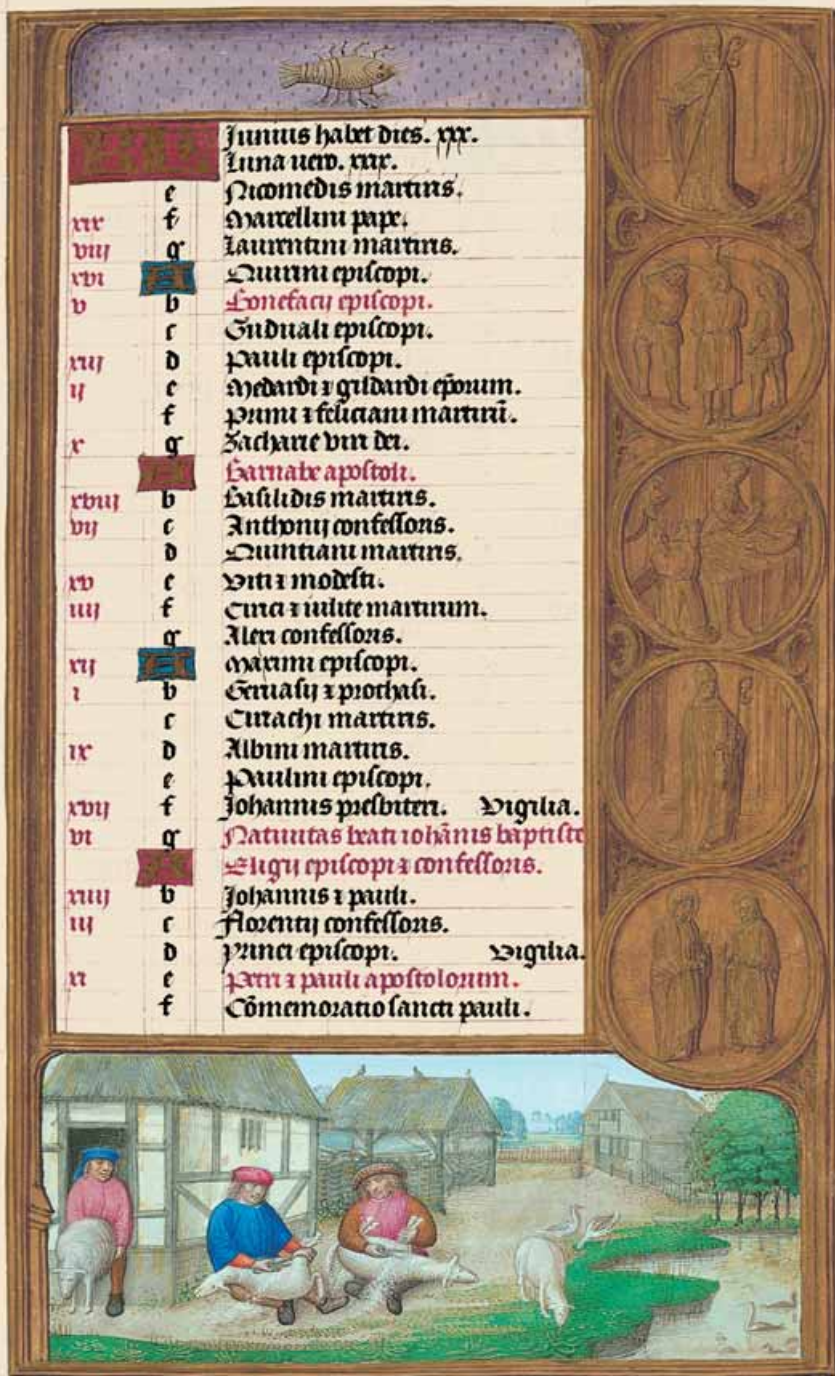 KL Junius habet dies. xxx.
Luna vero. xxx.
e Nicomedis martiris.
xix f Marcellini pape.
viij g Laurentini martiris.
xvi A Quirini episcopi.
v b Bonefacij episcopi.
c Guduali episcopi.
xiij d Pauli episcopi.
ij e Medardi ⁊ gildardi ep̄orum.
f Primi ⁊ feliciani martirū.
x g Zacharie viri dei.
A Barnabe apostoli.
xviij b Basilidis martiris.
vij c Anthonij confessoris.
d Quintiani martiris.
xv e Viti ⁊ modesti.
iiij f Cirici ⁊ iulite martirum.
g Alexi confessoris.
xij A Maximi episcopi.
i b Geruasij ⁊ prothasi.
c Ciriachi martiris.
ix d Albini martiris.
e Paulini episcopi.
xvij f Johannis presbiteri. Vigilia.
vi g Natiuitas beati iohānis baptiste
A Eligij episcopi ⁊ confessoris.
xiiij b Johannis ⁊ pauli.
iij c Florentij confessoris.
d episcopi. Vigilia.
xi e Petri ⁊ pauli apostolorum.
f Cōmemoratio sancti pauli.